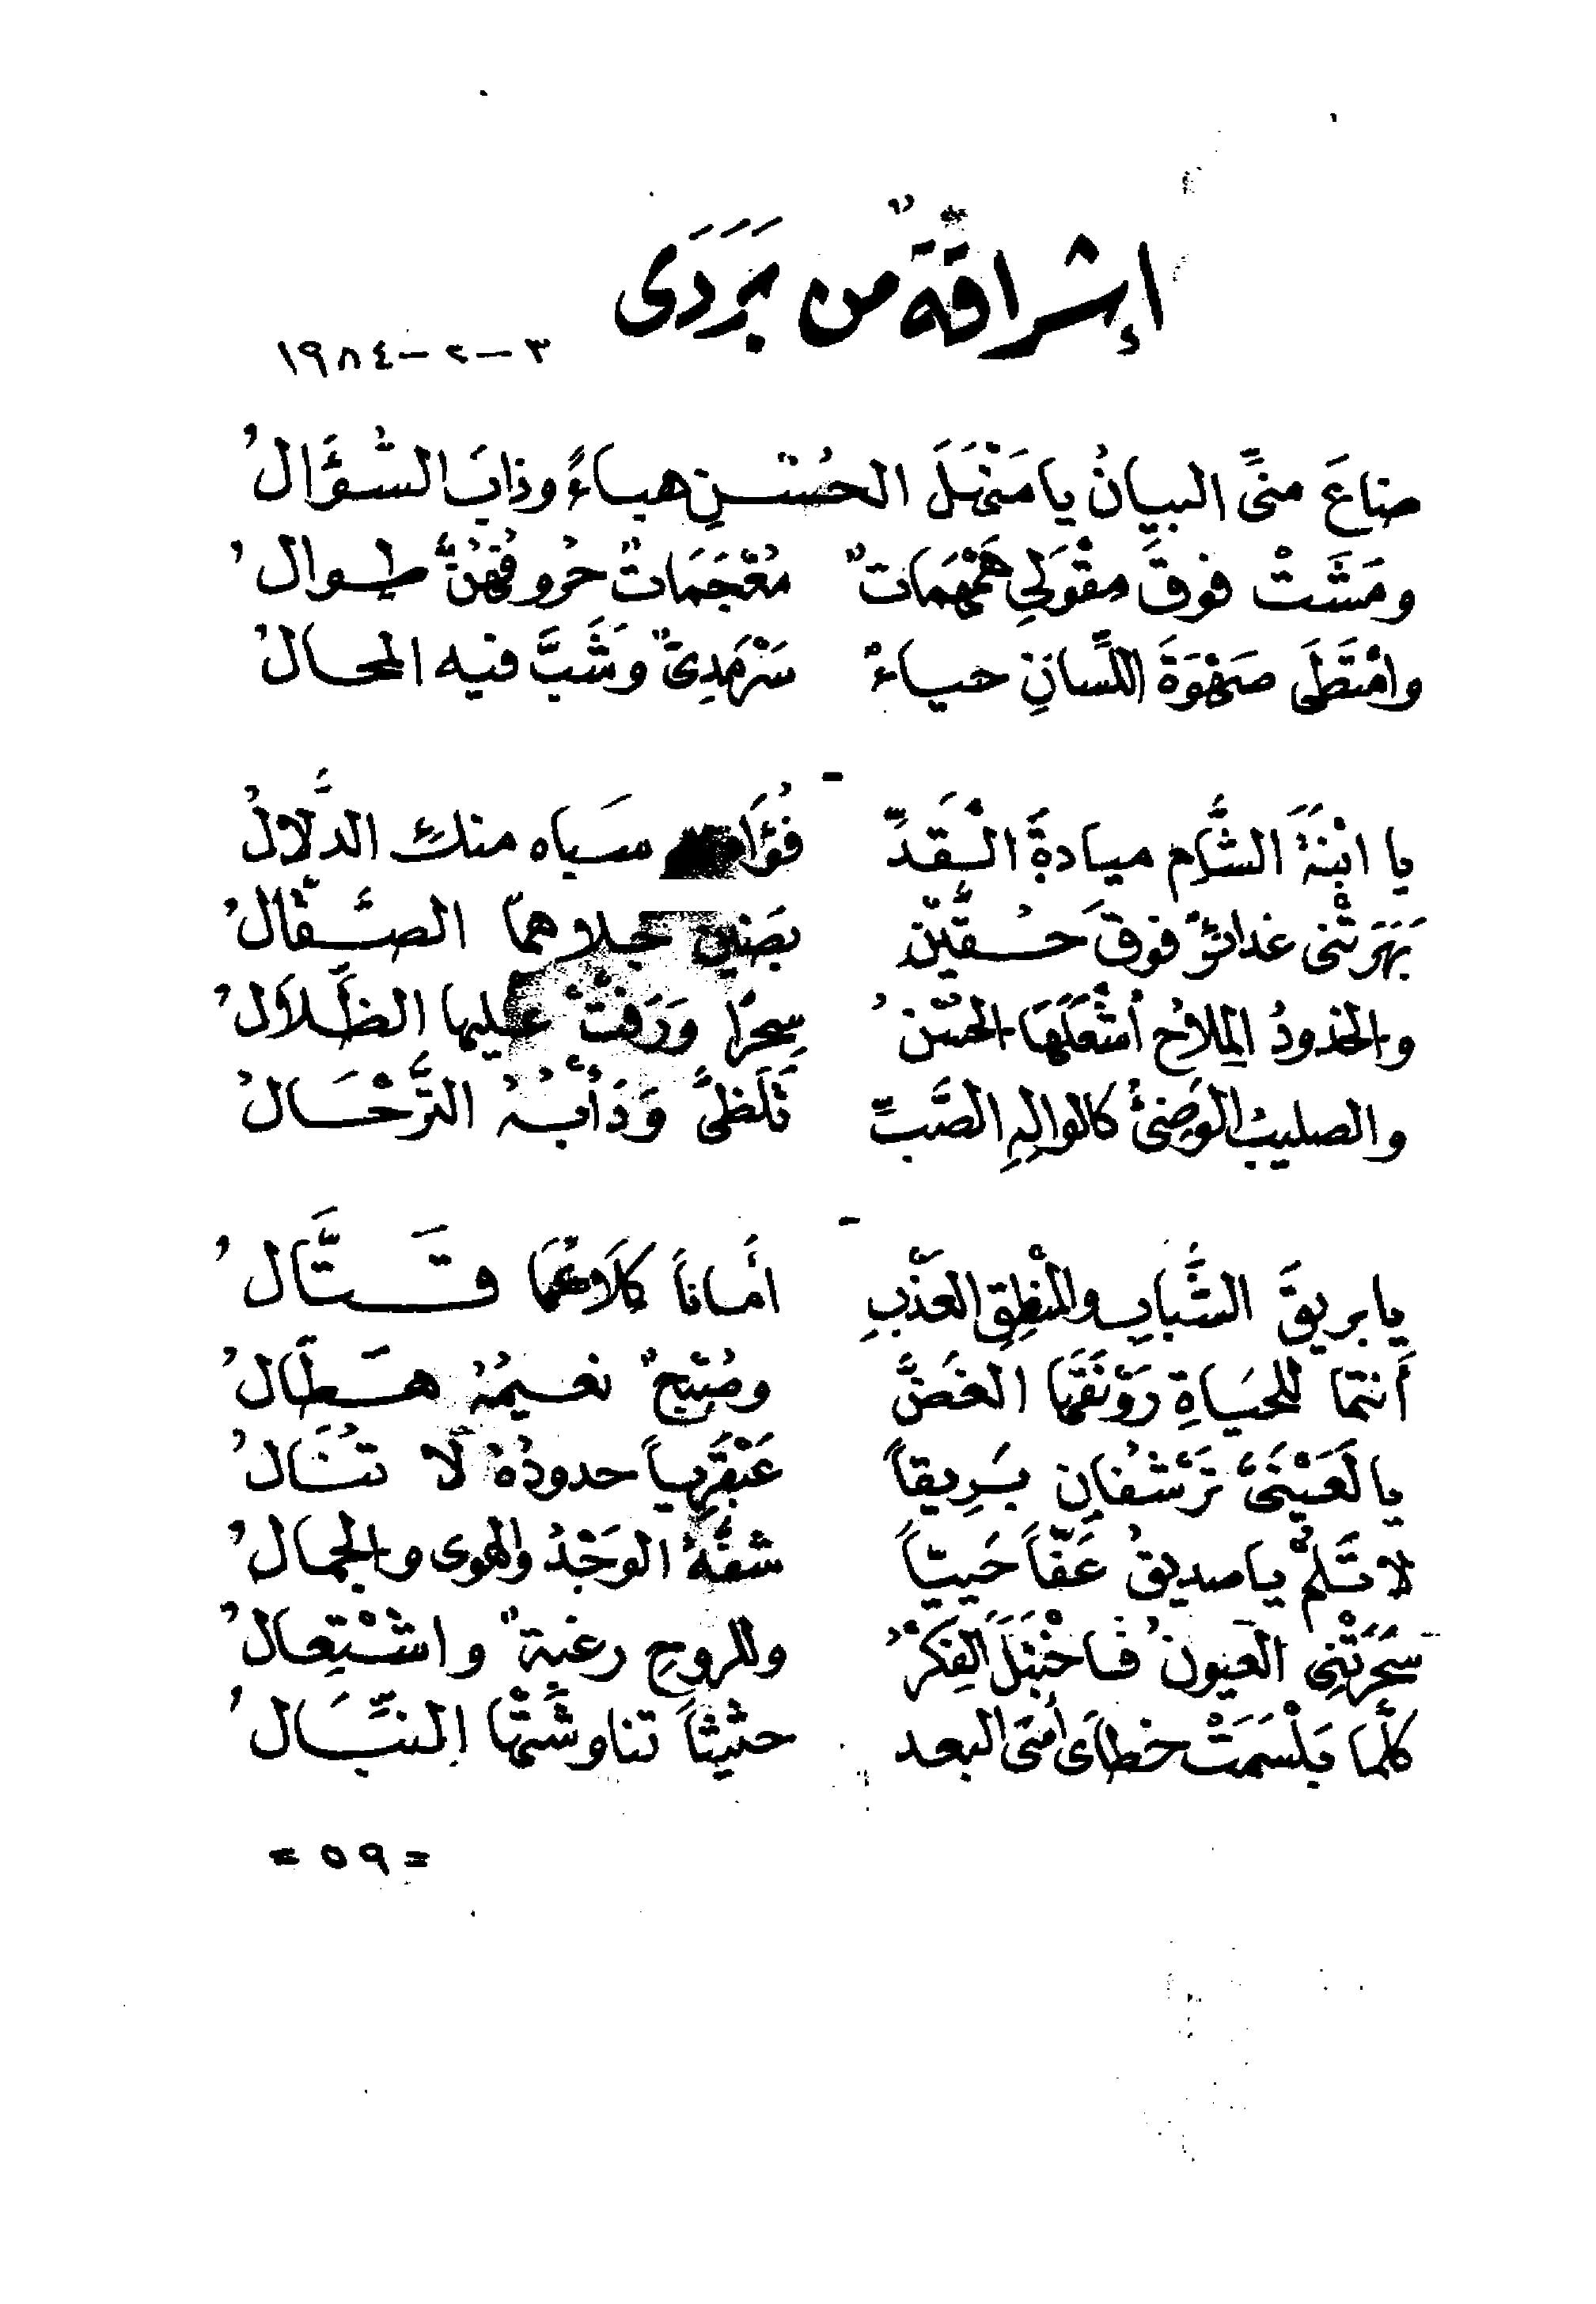 إشراقةٌ من بَرَدَى
٣-٢-١٩٨٤
ضاعَ منِّي البيانُ يا مَنْهَلَ الحُسْنِ هباءً وذابَ السُّؤَالُ
ومَشَتْ فوقَ مِقْوَلي هَمْهَمَاتٌ مُعْجَمَاتٌ حُروفُهُنَّ طوالُ
وامْتَطَى صَهْوَةَ اللِّسانِ حياءٌ سَرْمَدِيٌّ وَشَبَّ فيه المحالُ
يا ابْنَةَ الشَّامِ ميادةَ الْقَدِّ سباه منكِ الدَّلالُ
بَهَرَتْني غدائرٌ فوقَ حُقَّيْنِ بضَّينِ جلاهما الصَّقَالُ
والخدودُ المِلاحُ أشْعَلَهَا الحُسْنُ سِحرًا وَرَفَّتْ عليها الظِّلَالُ
والصليبُ الوَضِئُ كالوالِهِ الصَّبِّ تَلَظَّى وَدَأْبُهُ التَّرْحَالُ
يا بريقَ الشَّبابِ والمنْطِقِ العَذْبِ أَماناً كِلَاكُمَا قَتَّالُ
أَنتما للحيَاةِ رَوْنَقَهَا الغَضَّ وصُبْحٌ نعيمُهُ هَطَّالُ
يا لَعَيْنَيَّ تَرْشفُانِ بَرِيقاً عَبْقَرِياً حدودُهُ لَا تُنَالُ
لا تَلُمْ يا صديقُ عَفّاً حَيِيّاً شفَّهُ الوَجْدُ والهوى والجمالُ
سَحَرَتْنِي العيونُ فاخْتَبَلَ الفِكْرُ وللروحِ رغبةٌ واشْتِعالُ
كلَّما بَلْسَمَتْ خطايَ أُمَتى البعد حثيثاً تناوشَتْها النِّبَالُ
= ٥٩ =